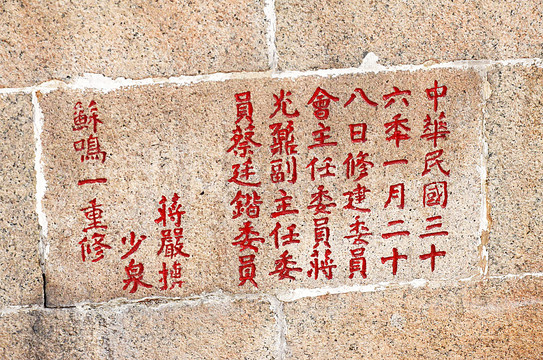 中華民國三十
六秊一月二十
八日修建委員
會主任委員蔣
光鼐副主任委
員蔡廷鍇委員
蔣嚴
少泉
蘇鳴一重修